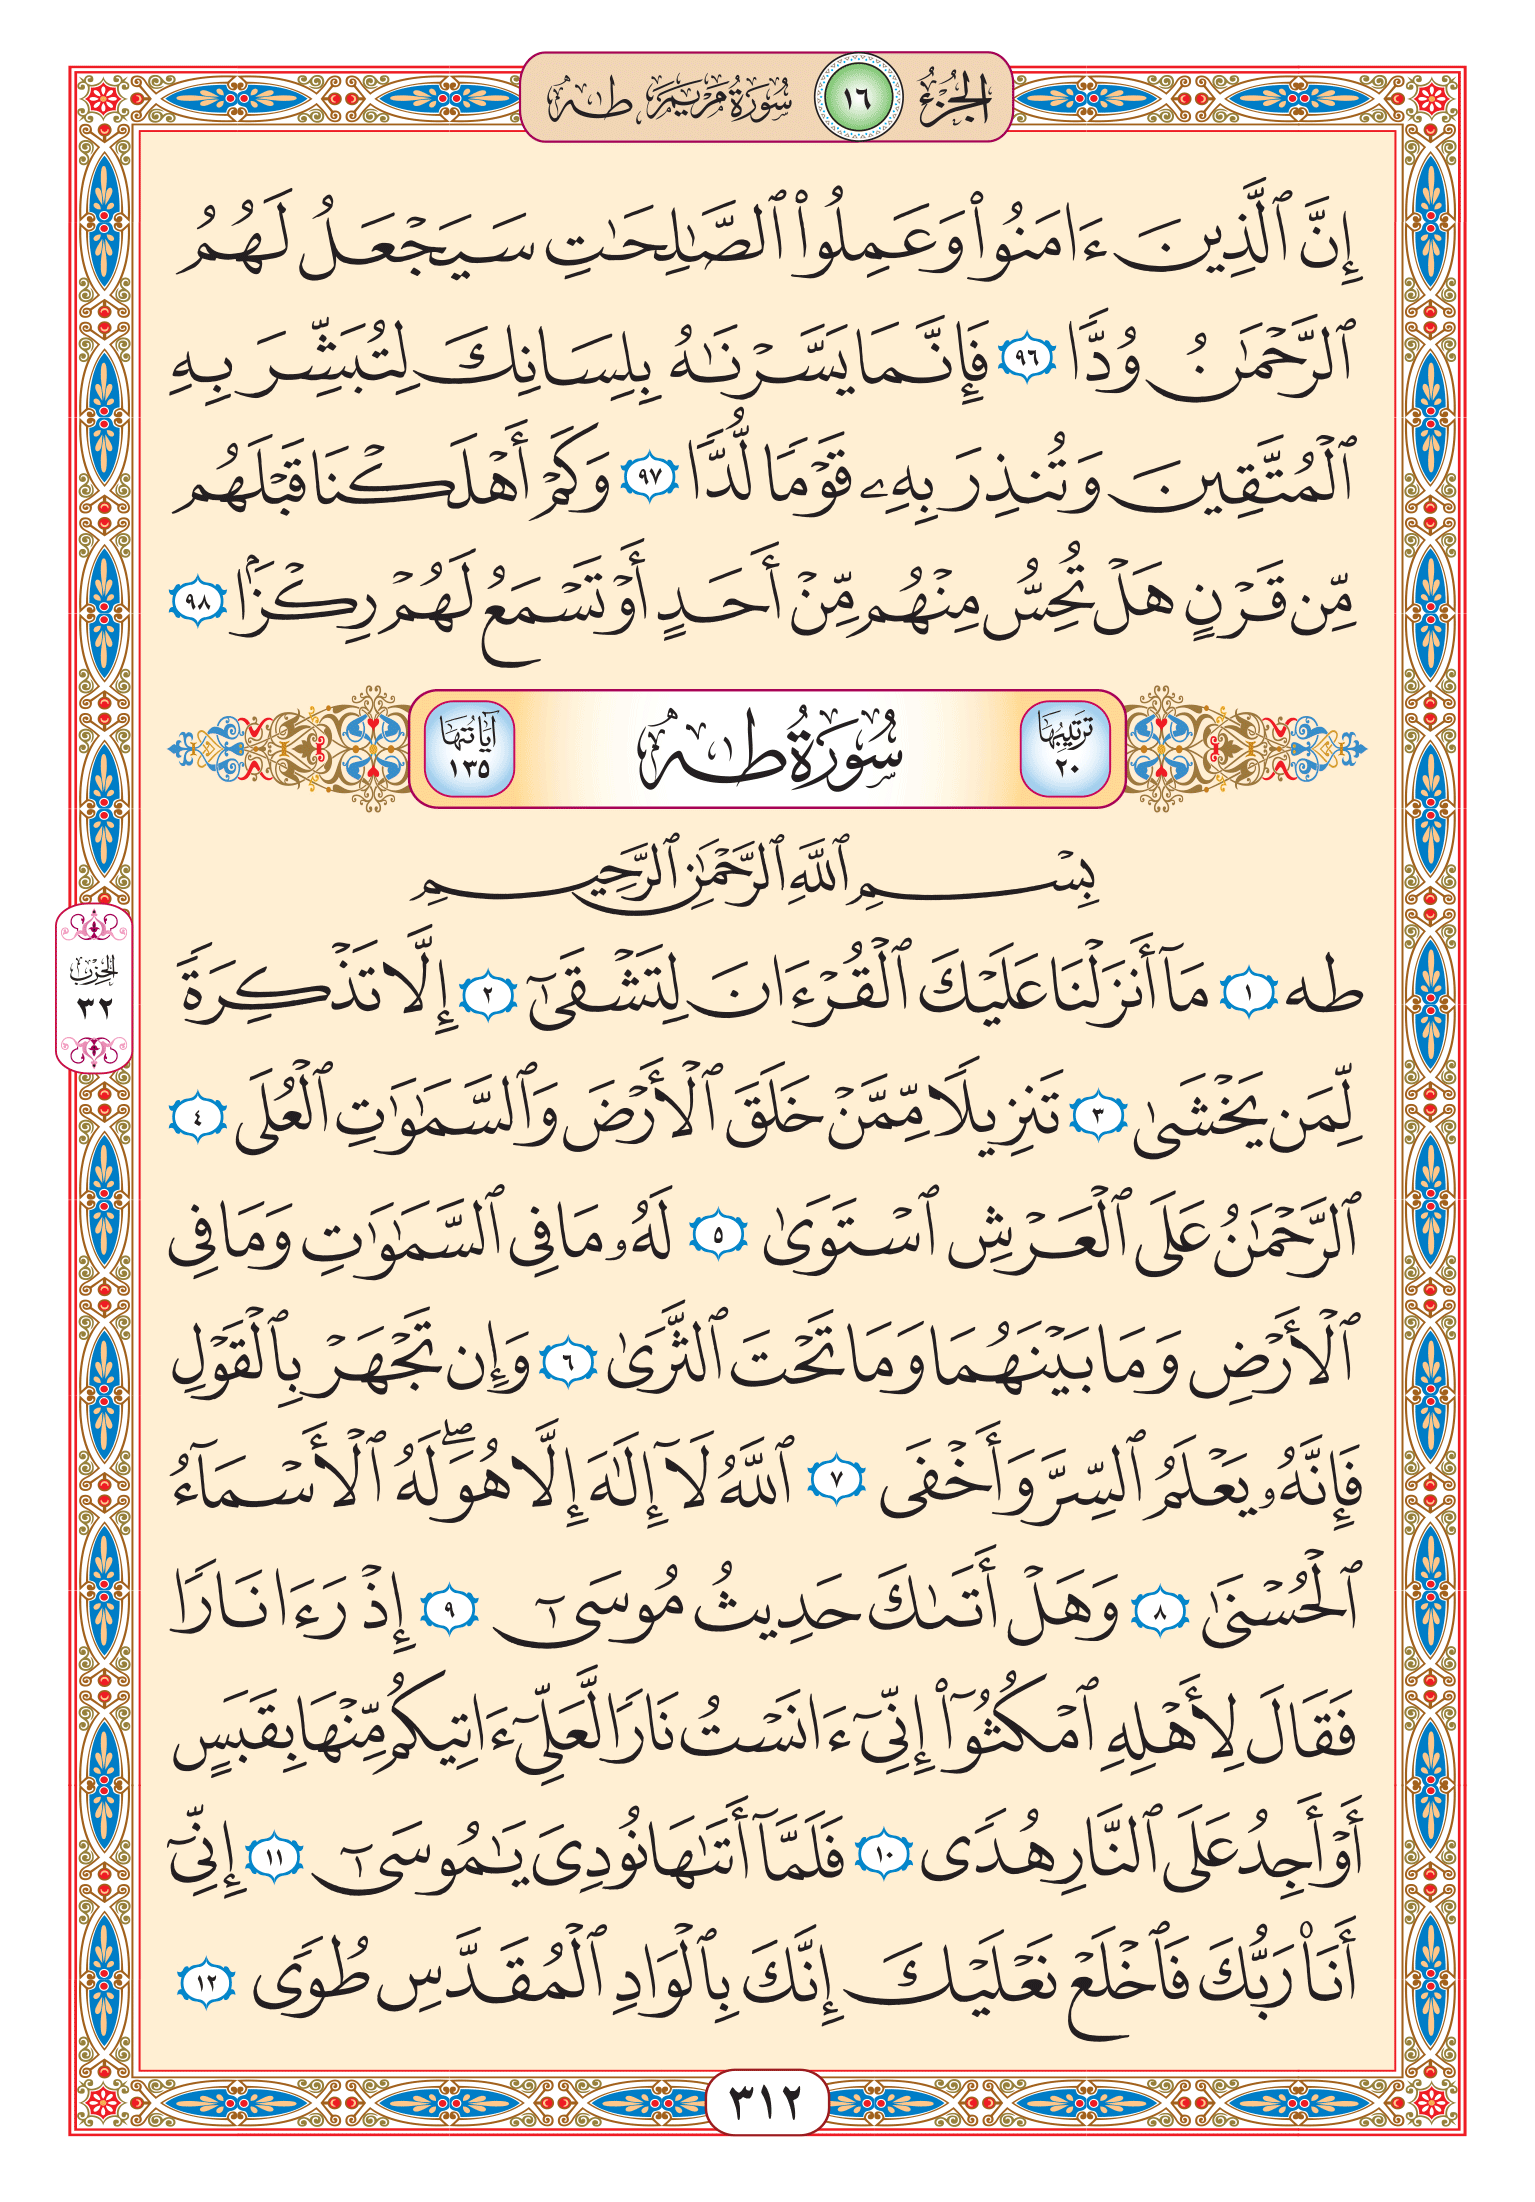 الجزء ١٦ سورة مريم طه
إِنَّ ٱلَّذِينَ ءَامَنُوا۟ وَعَمِلُوا۟ ٱلصَّـٰلِحَـٰتِ سَيَجْعَلُ لَهُمُ
ٱلرَّحْمَـٰنُ وُدًّا ٩٦ فَإِنَّمَا يَسَّرْنَـٰهُ بِلِسَانِكَ لِتُبَشِّرَ بِهِ
ٱلْمُتَّقِينَ وَتُنذِرَ بِهِۦ قَوْمًا لُّدًّا ٩٧ وَكَمْ أَهْلَكْنَا قَبْلَهُم
مِّن قَرْنٍ هَلْ تُحِسُّ مِنْهُم مِّنْ أَحَدٍ أَوْ تَسْمَعُ لَهُمْ رِكْزًۢا ٩٨
ترتيبها ٢٠ سُورَةُ طه آياتها ١٣٥
بِسْمِ ٱللَّهِ ٱلرَّحْمَـٰنِ ٱلرَّحِيمِ
طه ١ مَآ أَنزَلْنَا عَلَيْكَ ٱلْقُرْءَانَ لِتَشْقَىٰٓ ٢ إِلَّا تَذْكِرَةً
لِّمَن يَخْشَىٰ ٣ تَنزِيلًا مِّمَّنْ خَلَقَ ٱلْأَرْضَ وَٱلسَّمَـٰوَٰتِ ٱلْعُلَى ٤
ٱلرَّحْمَـٰنُ عَلَى ٱلْعَرْشِ ٱسْتَوَىٰ ٥ لَهُۥ مَا فِى ٱلسَّمَـٰوَٰتِ وَمَا فِى
ٱلْأَرْضِ وَمَا بَيْنَهُمَا وَمَا تَحْتَ ٱلثَّرَىٰ ٦ وَإِن تَجْهَرْ بِٱلْقَوْلِ
فَإِنَّهُۥ يَعْلَمُ ٱلسِّرَّ وَأَخْفَى ٧ ٱللَّهُ لَآ إِلَـٰهَ إِلَّا هُوَ ۖ لَهُ ٱلْأَسْمَآءُ
ٱلْحُسْنَىٰ ٨ وَهَلْ أَتَىٰكَ حَدِيثُ مُوسَىٰٓ ٩ إِذْ رَءَا نَارًا
فَقَالَ لِأَهْلِهِ ٱمْكُثُوٓا۟ إِنِّىٓ ءَانَسْتُ نَارًا لَّعَلِّىٓ ءَاتِيكُم مِّنْهَا بِقَبَسٍ
أَوْ أَجِدُ عَلَى ٱلنَّارِ هُدًى ١٠ فَلَمَّآ أَتَىٰهَا نُودِىَ يَـٰمُوسَىٰٓ ١١ إِنِّىٓ
أَنَا۠ رَبُّكَ فَٱخْلَعْ نَعْلَيْكَ إِنَّكَ بِٱلْوَادِ ٱلْمُقَدَّسِ طُوًى ١٢
الحزب
٣٢
٣١٢